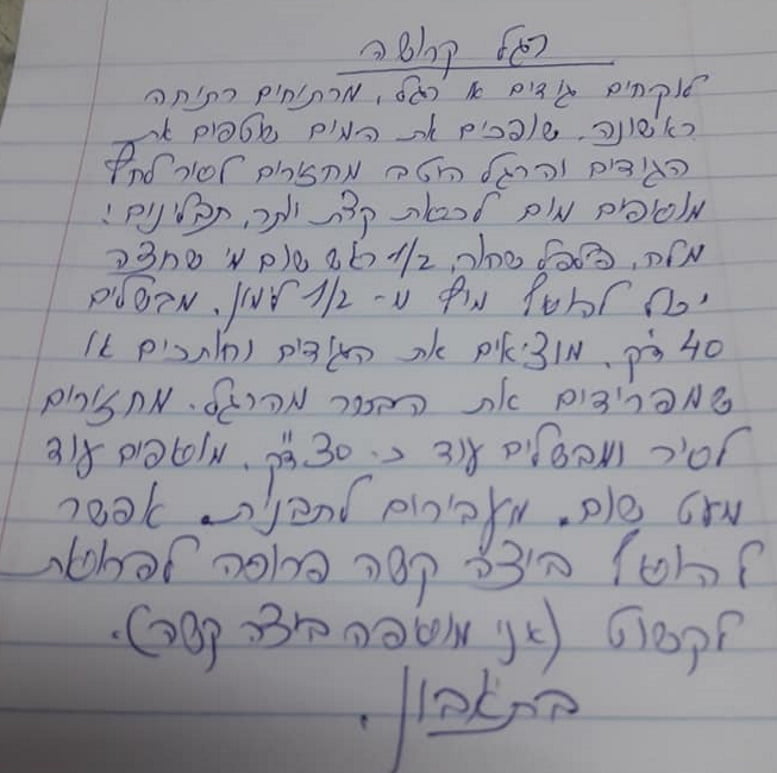 רגל קרושה
לוקחים גידים או רגל, מרתיחים רתיחה
ראשונה. שופכים את המים שוטפים את
הגידים והרגל היטב מחזירים לסיר לחץ
מוסיפים מים לכסות קצת יותר, תבלינים:
מלח, פילפל שחור, 1/2 ראש שום מי שרוצה
יכול להוסיף מיץ מ- 1/2 לימון. מבשלים
40 דק'. מוציאים את הגידים וחותכים או
שמפרידים את הבשר מהרגל. מחזירים
לסיר ומבשלים עוד כ- 30 דק'. מוסיפים עוד
מעט שום. מעבירים לתבנית. אפשר
להוסיף ביצה קשה פרוסה לפרוסות
לקשוט (אני מוסיפה ביצה קשה).
בתאבון.